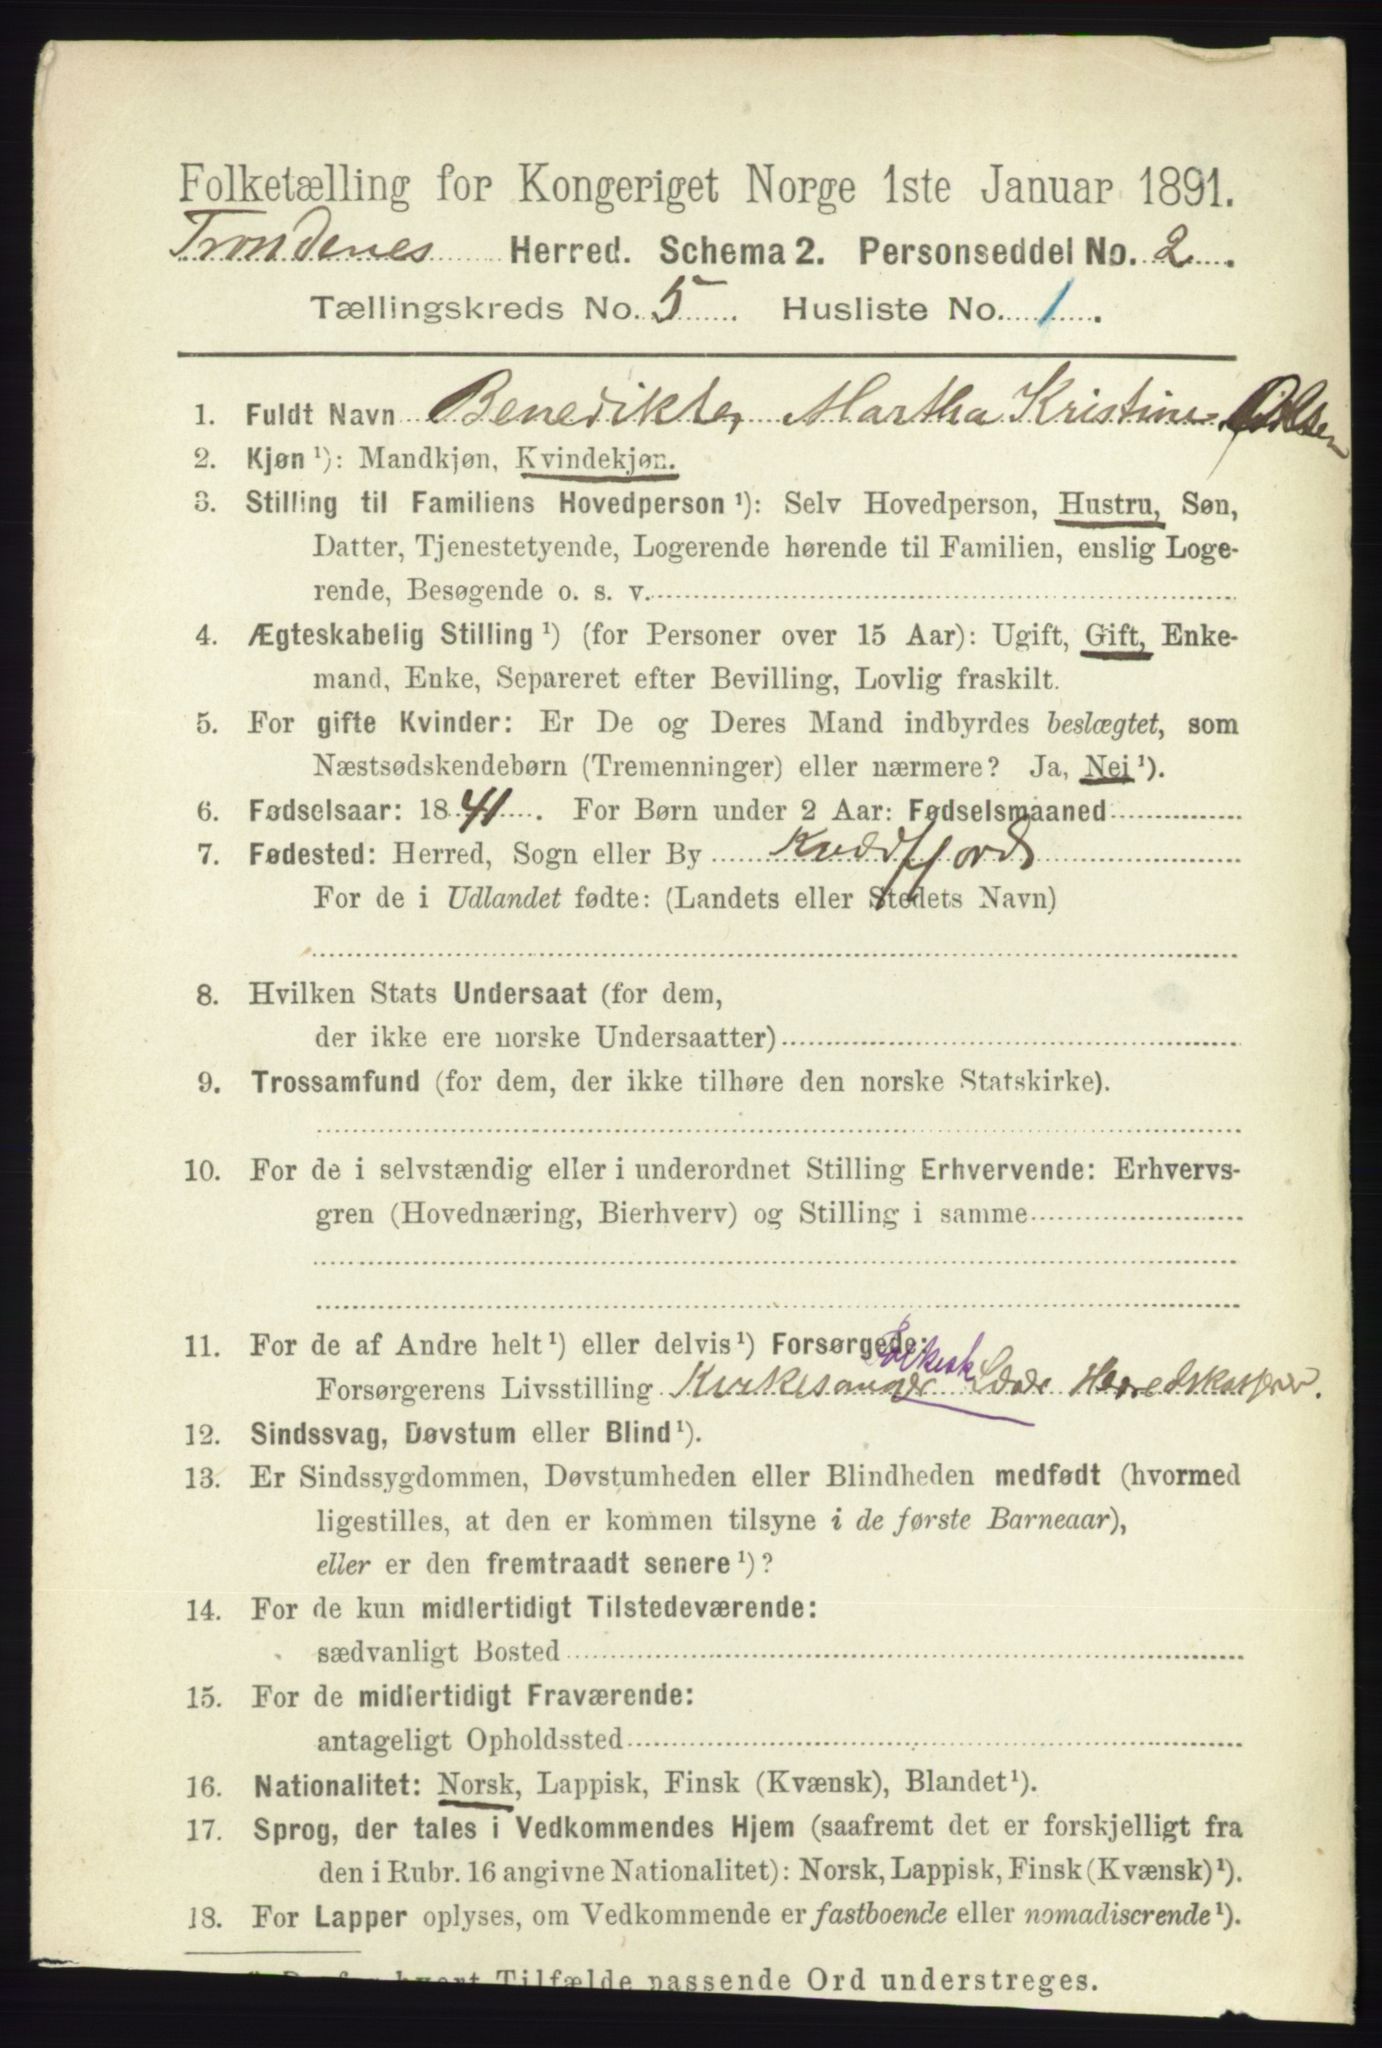 Folketælling for Kongeriget Norge 1ste Januar 1891.
Trondenes Herred. Schema 2. Personseddel No. 2
Tællingskreds No. 5 Husliste No. 1.
1. Fuldt Navn Benedikte, Martha Kristine Olsen
2. Kjøn ¹): Mandkjøn, Kvindekjøn.
3. Stilling til Familiens Hovedperson ¹): Selv Hovedperson, Hustru, Søn,
Datter, Tjenestetyende, Logerende hørende til Familien, enslig Loge-
rende, Besøgende o. s. v.
4. Ægteskabelig Stilling ¹) (for Personer over 15 Aar): Ugift, Gift, Enke-
mand, Enke, Separeret efter Bevilling, Lovlig fraskilt.
5. For gifte Kvinder: Er De og Deres Mand indbyrdes beslægtet, som
Næstsødskendebørn (Tremenninger) eller nærmere? Ja, Nei ¹).
6. Fødselsaar: 1841. For Børn under 2 Aar: Fødselsmaaned
7. Fødested: Herred, Sogn eller By Kvædfjord
For de i Udlandet fødte: (Landets eller Stedets Navn)
8. Hvilken Stats Undersaat (for dem,
der ikke ere norske Undersaatter)
9. Trossamfund (for dem, der ikke tilhøre den norske Statskirke).
10. For de i selvstændig eller i underordnet Stilling Erhvervende: Erhvervs-
gren (Hovednæring, Bierhverv) og Stilling i samme
11. For de af Andre helt ¹) eller delvis ¹) Forsørgede:
Folkesk
Forsørgerens Livsstilling Kirkesanger Herredskasserer.
12. Sindssvag, Døvstum eller Blind ¹).
13. Er Sindssygdommen, Døvstumheden eller Blindheden medfødt (hvormed
ligestilles, at den er kommen tilsyne i de første Barneaar),
eller er den fremtraadt senere ¹)?
14. For de kun midlertidigt Tilstedeværende:
sædvanligt Bosted
15. For de midlertidigt Fraværende:
antageligt Opholdssted
16. Nationalitet: Norsk, Lappisk, Finsk (Kvænsk), Blandet ¹).
17. Sprog, der tales i Vedkommendes Hjem (saafremt det er forskjelligt fra
den i Rubr. 16 angivne Nationalitet): Norsk, Lappisk, Finsk (Kvænsk) ¹).
18. For Lapper oplyses, om Vedkommende er fastboende eller nomadiserende ¹).
hvert Tilfælde passende Ord understreges.